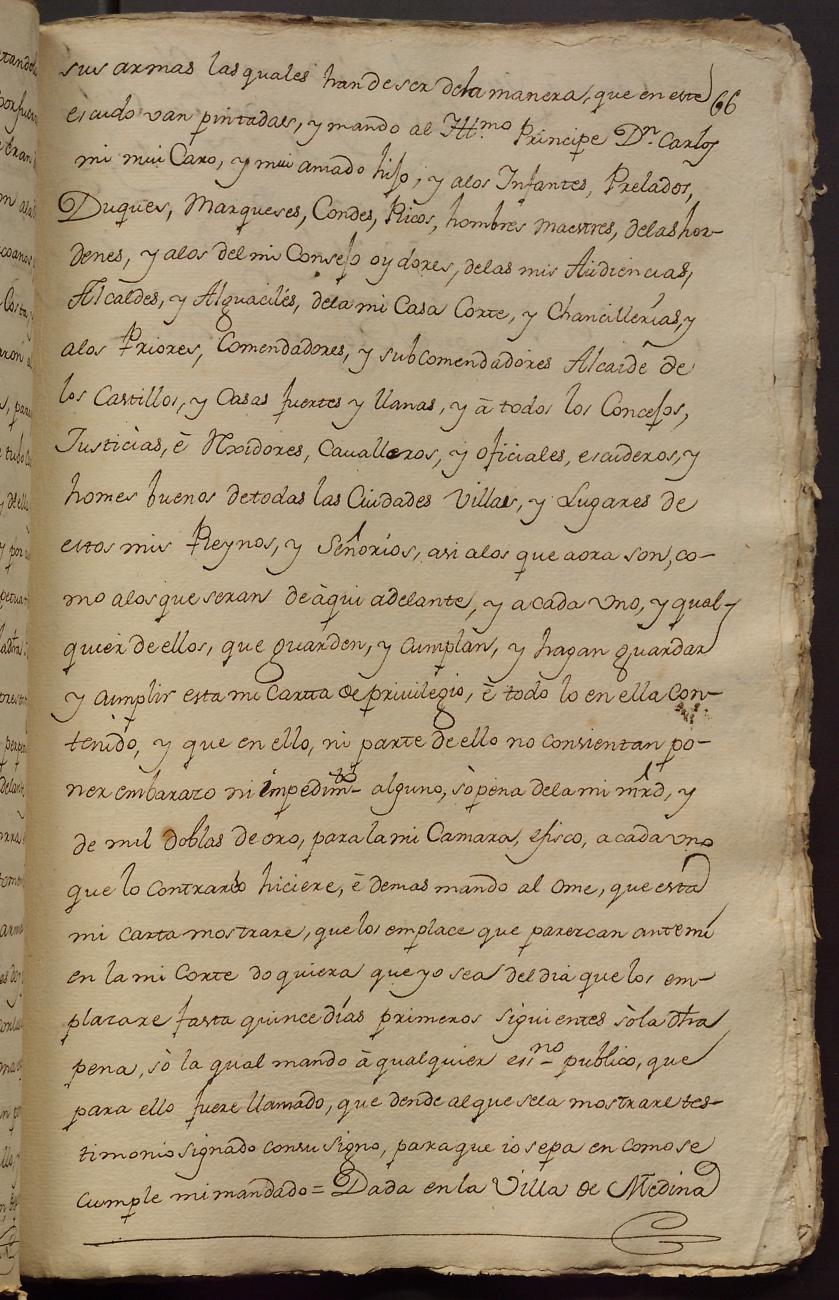 sus armas las quales han de ser dela manera, que en este
66
escudo van pintadas, y mando al Ill.mo Principe D.n Carlos
mi mui Caro, y mui amado hijo, y alos Infantes, Prelados,
Duques, Marqueses, Condes, Ricos, hombres maestres, delas hor-
denes, y alos del mi Consejo oydores, delas mis Audiencias,
Alcaldes, y Alguaciles, dela mi Casa Corte, y Chancillerias, y
alos Priores, Comendadores, y subcomendadores Alcaide de
los Castillos, y Casas fuertes y llanas, y à todos los Concejos,
Justicias, è Rexidores, Cavalleros, y oficiales, escuderos, y
homes buenos detodas las Ciudades Villas, y Lugares de
estos mis Reynos, y Señorios, asi alos que aora son, co-
mo alos que seran de àqui adelante, y a cada uno, y qual-
quier de ellos, que guarden, y cumplan, y hagan guardar
y cumplir esta mi Cartta de privilegio, è todo lo en ella con-
tenido, y que en ello, ni parte de ello no consientan po-
ner embarazo ni impedim.to alguno, sò pena dela mi mrd, y
de mil doblas de oro, para la mi Camara, efisco, a cada uno
que lo contrario hiciere, è demas mando al ome, que esta
mi carta mostrare, que los emplace que parezcan ante mi
en la mi Corte do quiera que yo sea del dia que los em-
plazare fasta quince días primeros siguientes sò la dtra
pena, sò la qual mando à qualquier ess.no publico, que
para ello fuere llamado, que dende al que sela mostrare tes-
timonio signado con su signo, para que io sepa en como se
cumple mi mandado = Dada en la Villa de Medina